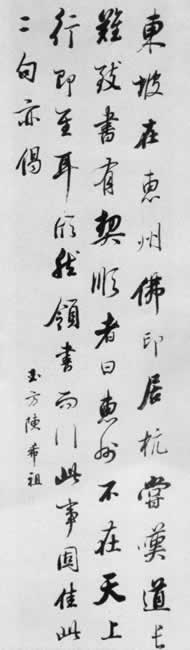 東坡在惠州佛印居杭嘗嘆道長
難致書有契順者曰惠州不在天上
行即至耳欣然領書而行此事固佳此
二句亦偈
玉方陳希祖